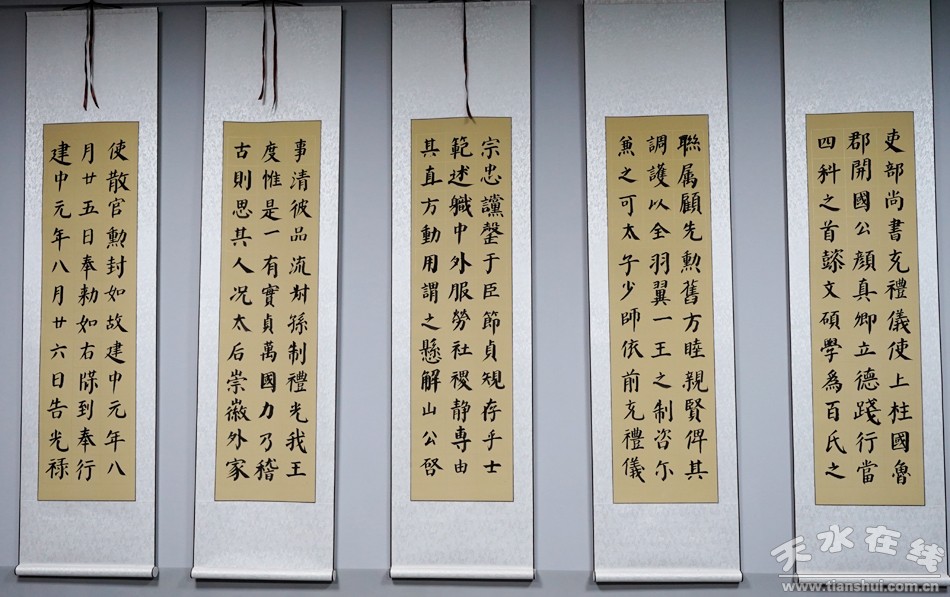 吏部尚書充禮儀使上柱國魯
郡開國公顏真卿立德踐行當
四科之首懿文碩學爲百氏之
聮属顧先勲舊方睦親賢俾其
調護以全羽翼一王之制咨尔
兼之可太子少師依前充禮儀
宗忠讜罄于臣節貞規存乎士
範述軄中外服勞社稷静專由
其直方動用謂之懸解山公啓
事清彼品流叔孫制禮光我王
度惟是一有實貞萬國力乃稽
古則思其人况太后崇徽外家
使散官勲封如故建中元年八
月廿五日奉勅如右牒到奉行
建中元年八月廿六日告光禄
天水在线
www.tianshui.com.cn